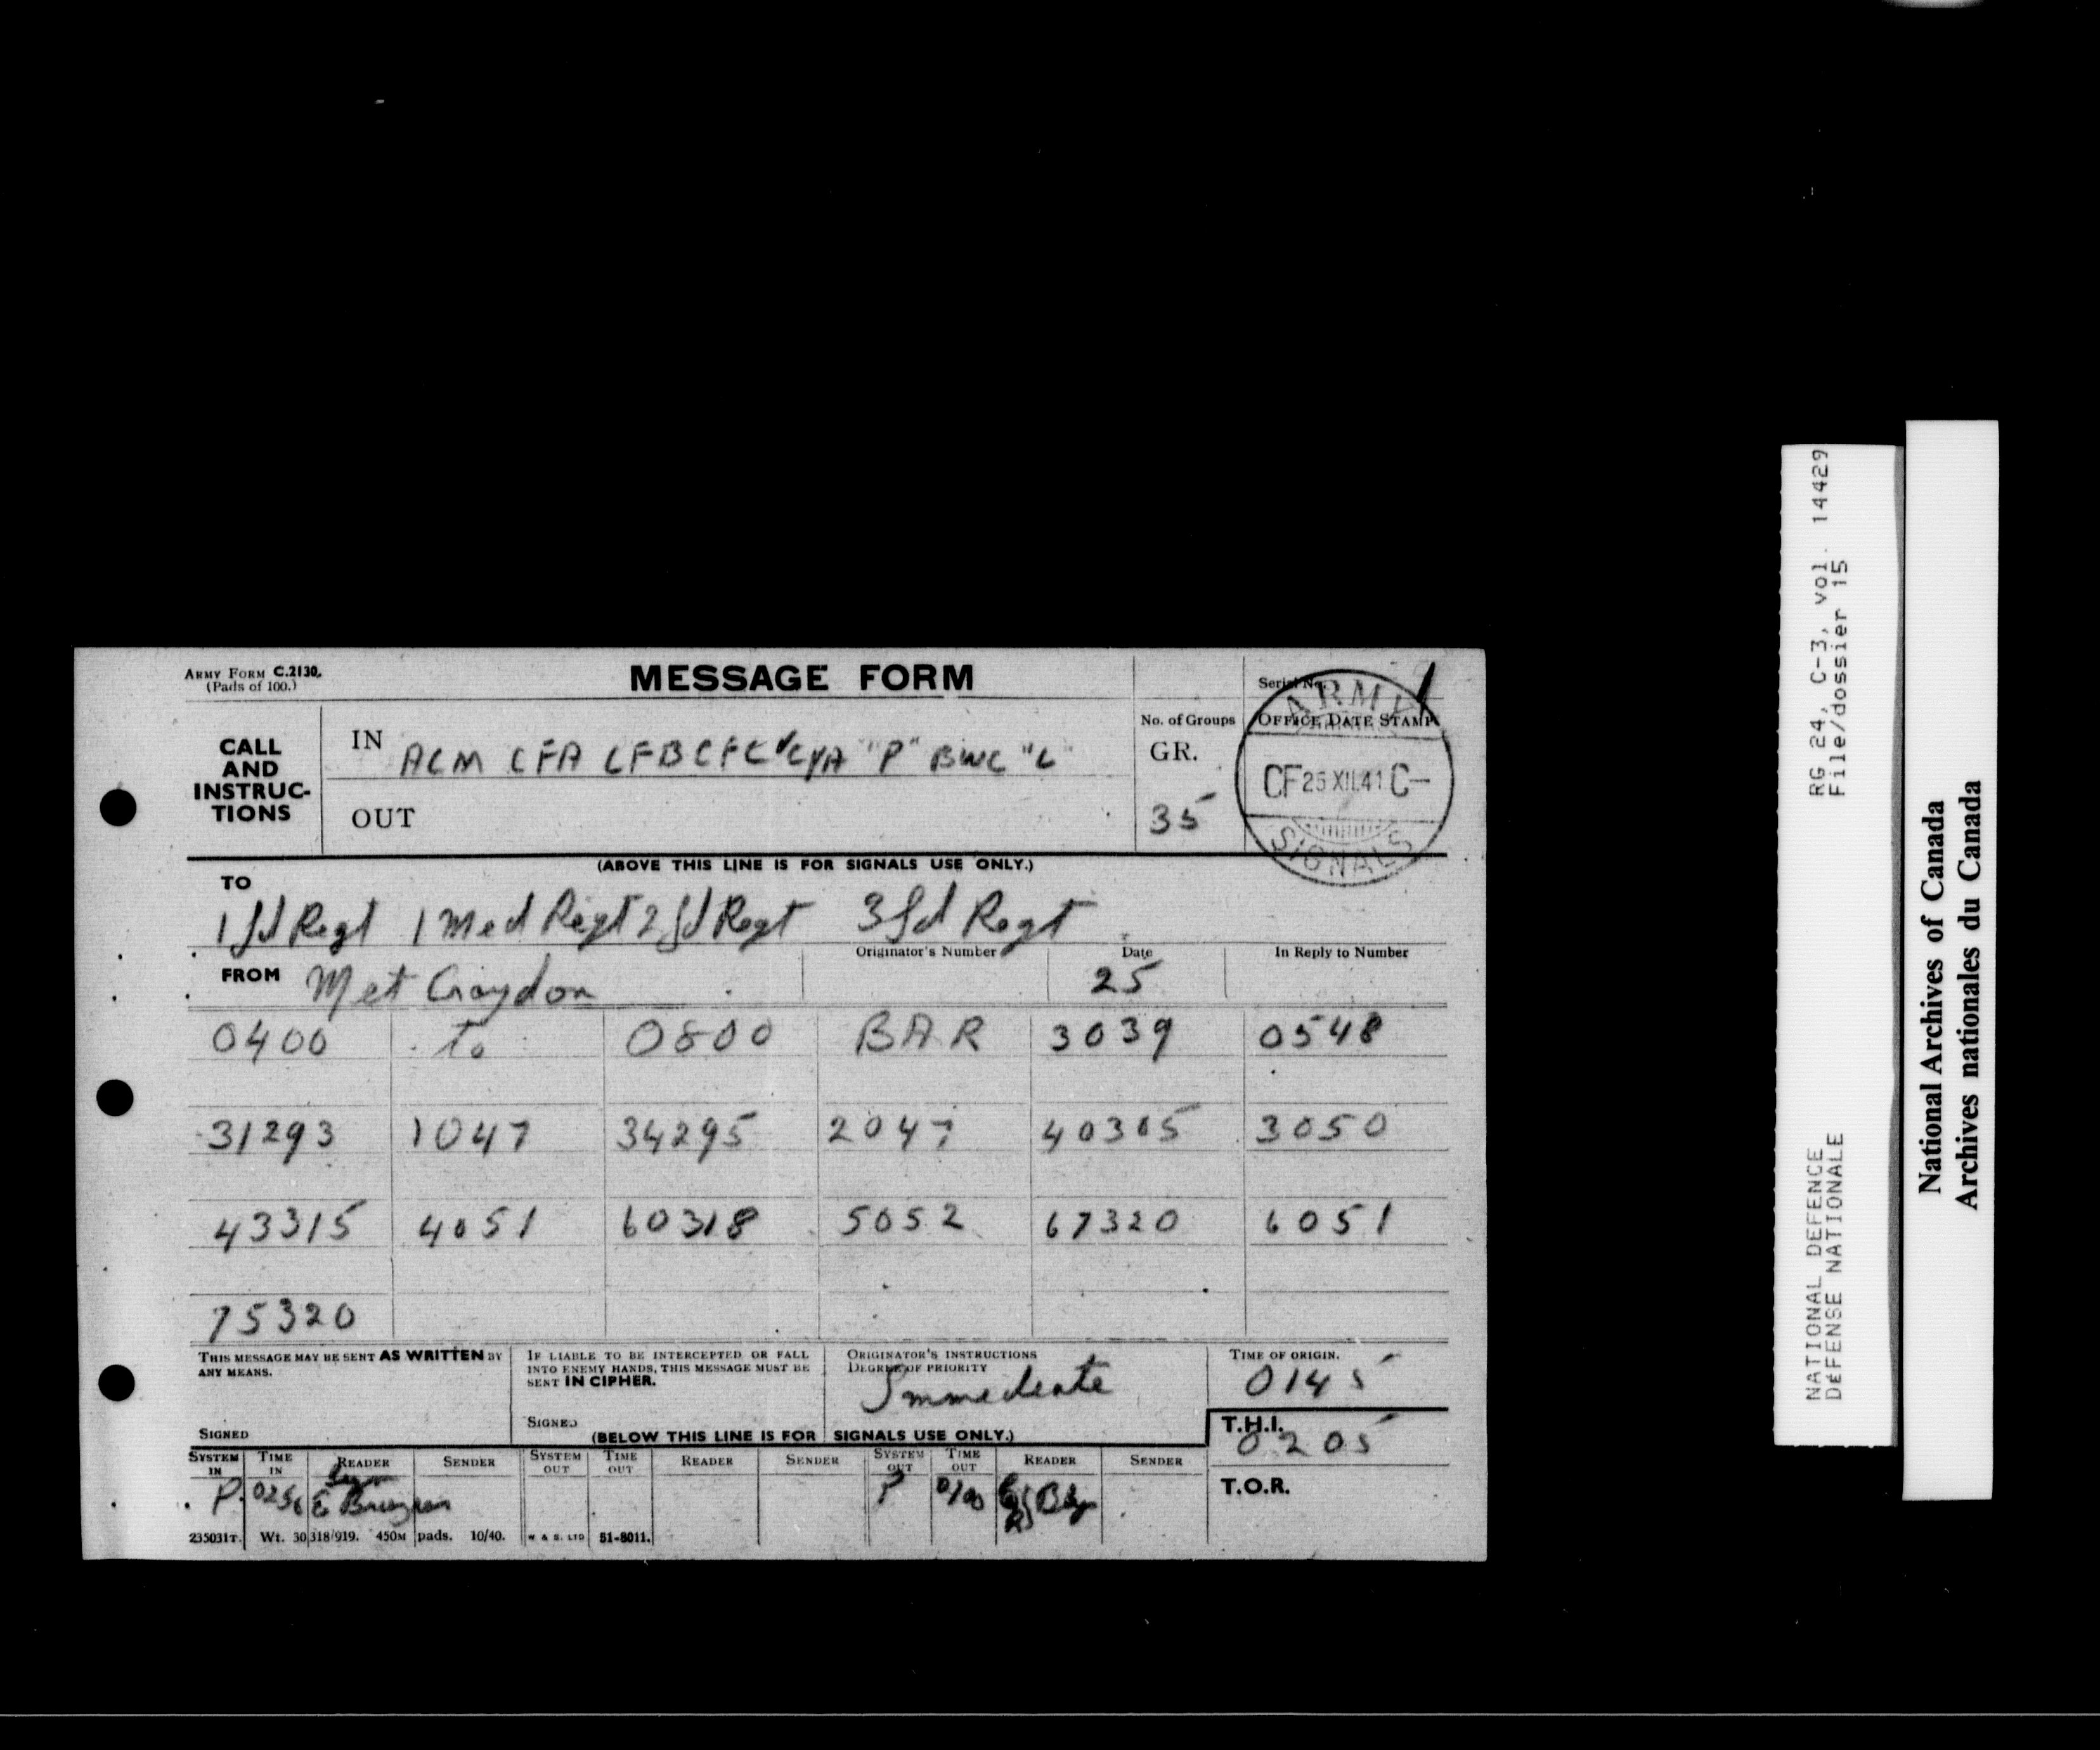 ARMY FORM C.2130.
(Pads of 100.)
MESSAGE FORM
Serial No. 1
CALL AND INSTRUC-TIONS
IN ACM CFA CFB CFC V CYA "P" BWC "L"
OUT
No. of Groups
GR.
35
OFFICE DATE STAMP
ARMY
CF 25 XII.41 C-
SIGNALS
(ABOVE THIS LINE IS FOR SIGNALS USE ONLY.)
TO
1 fd Regt 1 Med Regt 2 fd Regt 3 fd Regt
FROM Met Croydon
Originator's Number
Date
25
In Reply to Number
0400 to 0800 BAR 3039 0548
31293 1047 34295 2047 40305 3050
43315 4051 60318 5052 67320 6051
75320
THIS MESSAGE MAY BE SENT AS WRITTEN BY
ANY MEANS.
SIGNED
IF LIABLE TO BE INTERCEPTED OR FALL
INTO ENEMY HANDS, THIS MESSAGE MUST BE
SENT IN CIPHER.
SIGNED
ORIGINATOR'S INSTRUCTIONS
DEGREE OF PRIORITY
Immediate
TIME OF ORIGIN.
0145
(BELOW THIS LINE IS FOR SIGNALS USE ONLY.)
T.H.I.
0205
T.O.R.
SYSTEM IN TIME IN READER SENDER SYSTEM OUT TIME OUT READER SENDER SYSTEM OUT TIME OUT READER SENDER
P. E P
235031T. Wt. 30318/919. 450M pads. 10/40. W & S. LTD 51-8011.
RG 24, C-3, vol. 14429
File/dossier 15
NATIONAL DEFENCE
DEFENSE NATIONALE
National Archives of Canada
Archives nationales du Canada